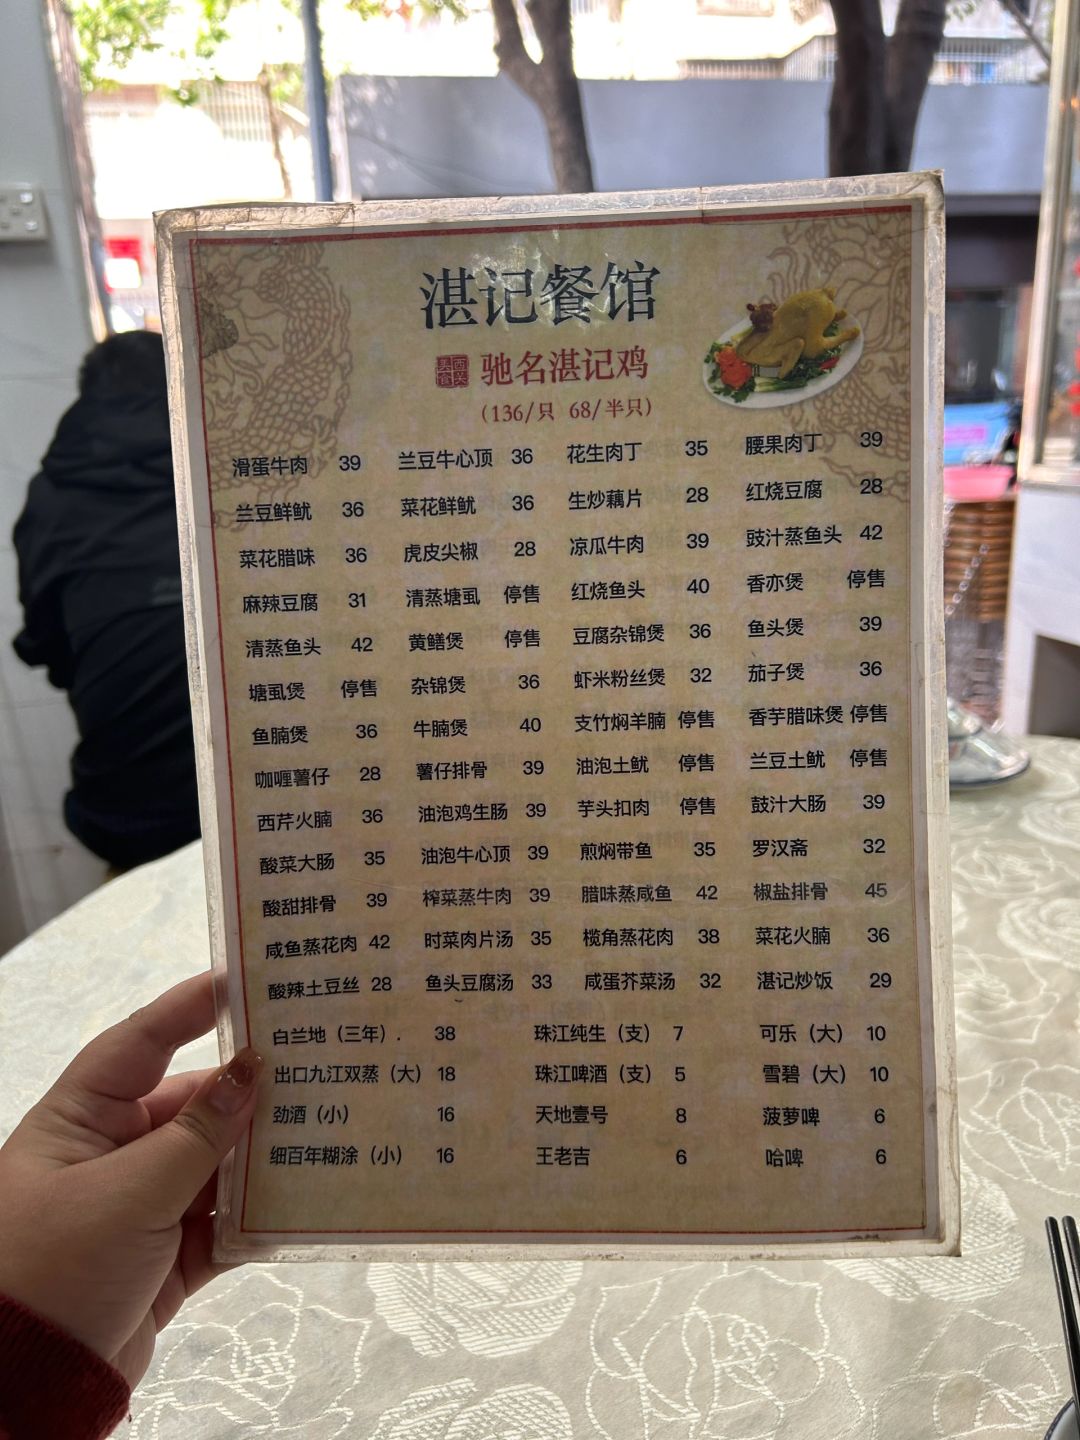 湛记餐馆
西关美食 驰名湛记鸡
(136/只 68/半只)
滑蛋牛肉 39 兰豆牛心顶 36 花生肉丁 35 腰果肉丁 39
兰豆鲜鱿 36 菜花鲜鱿 36 生炒藕片 28 红烧豆腐 28
菜花腊味 36 虎皮尖椒 28 凉瓜牛肉 39 豉汁蒸鱼头 42
麻辣豆腐 31 清蒸塘虱 停售 红烧鱼头 40 香亦煲 停售
清蒸鱼头 42 黄鳝煲 停售 豆腐杂锦煲 36 鱼头煲 39
塘虱煲 停售 杂锦煲 36 虾米粉丝煲 32 茄子煲 36
鱼腩煲 36 牛腩煲 40 支竹焖羊腩 停售 香芋腊味煲 停售
咖喱薯仔 28 薯仔排骨 39 油泡土鱿 停售 兰豆土鱿 停售
西芹火腩 36 油泡鸡生肠 39 芋头扣肉 停售 鼓汁大肠 39
酸菜大肠 35 油泡牛心顶 39 煎焖带鱼 35 罗汉斋 32
酸甜排骨 39 榨菜蒸牛肉 39 腊味蒸咸鱼 42 椒盐排骨 45
咸鱼蒸花肉 42 时菜肉片汤 35 榄角蒸花肉 38 菜花火腩 36
酸辣土豆丝 28 鱼头豆腐汤 33 咸蛋芥菜汤 32 湛记炒饭 29
白兰地（三年）. 38 珠江纯生（支） 7 可乐（大） 10
出口九江双蒸（大） 18 珠江啤酒（支） 5 雪碧（大） 10
劲酒（小） 16 天地壹号 8 菠萝啤 6
细百年糊涂（小） 16 王老吉 6 哈啤 6